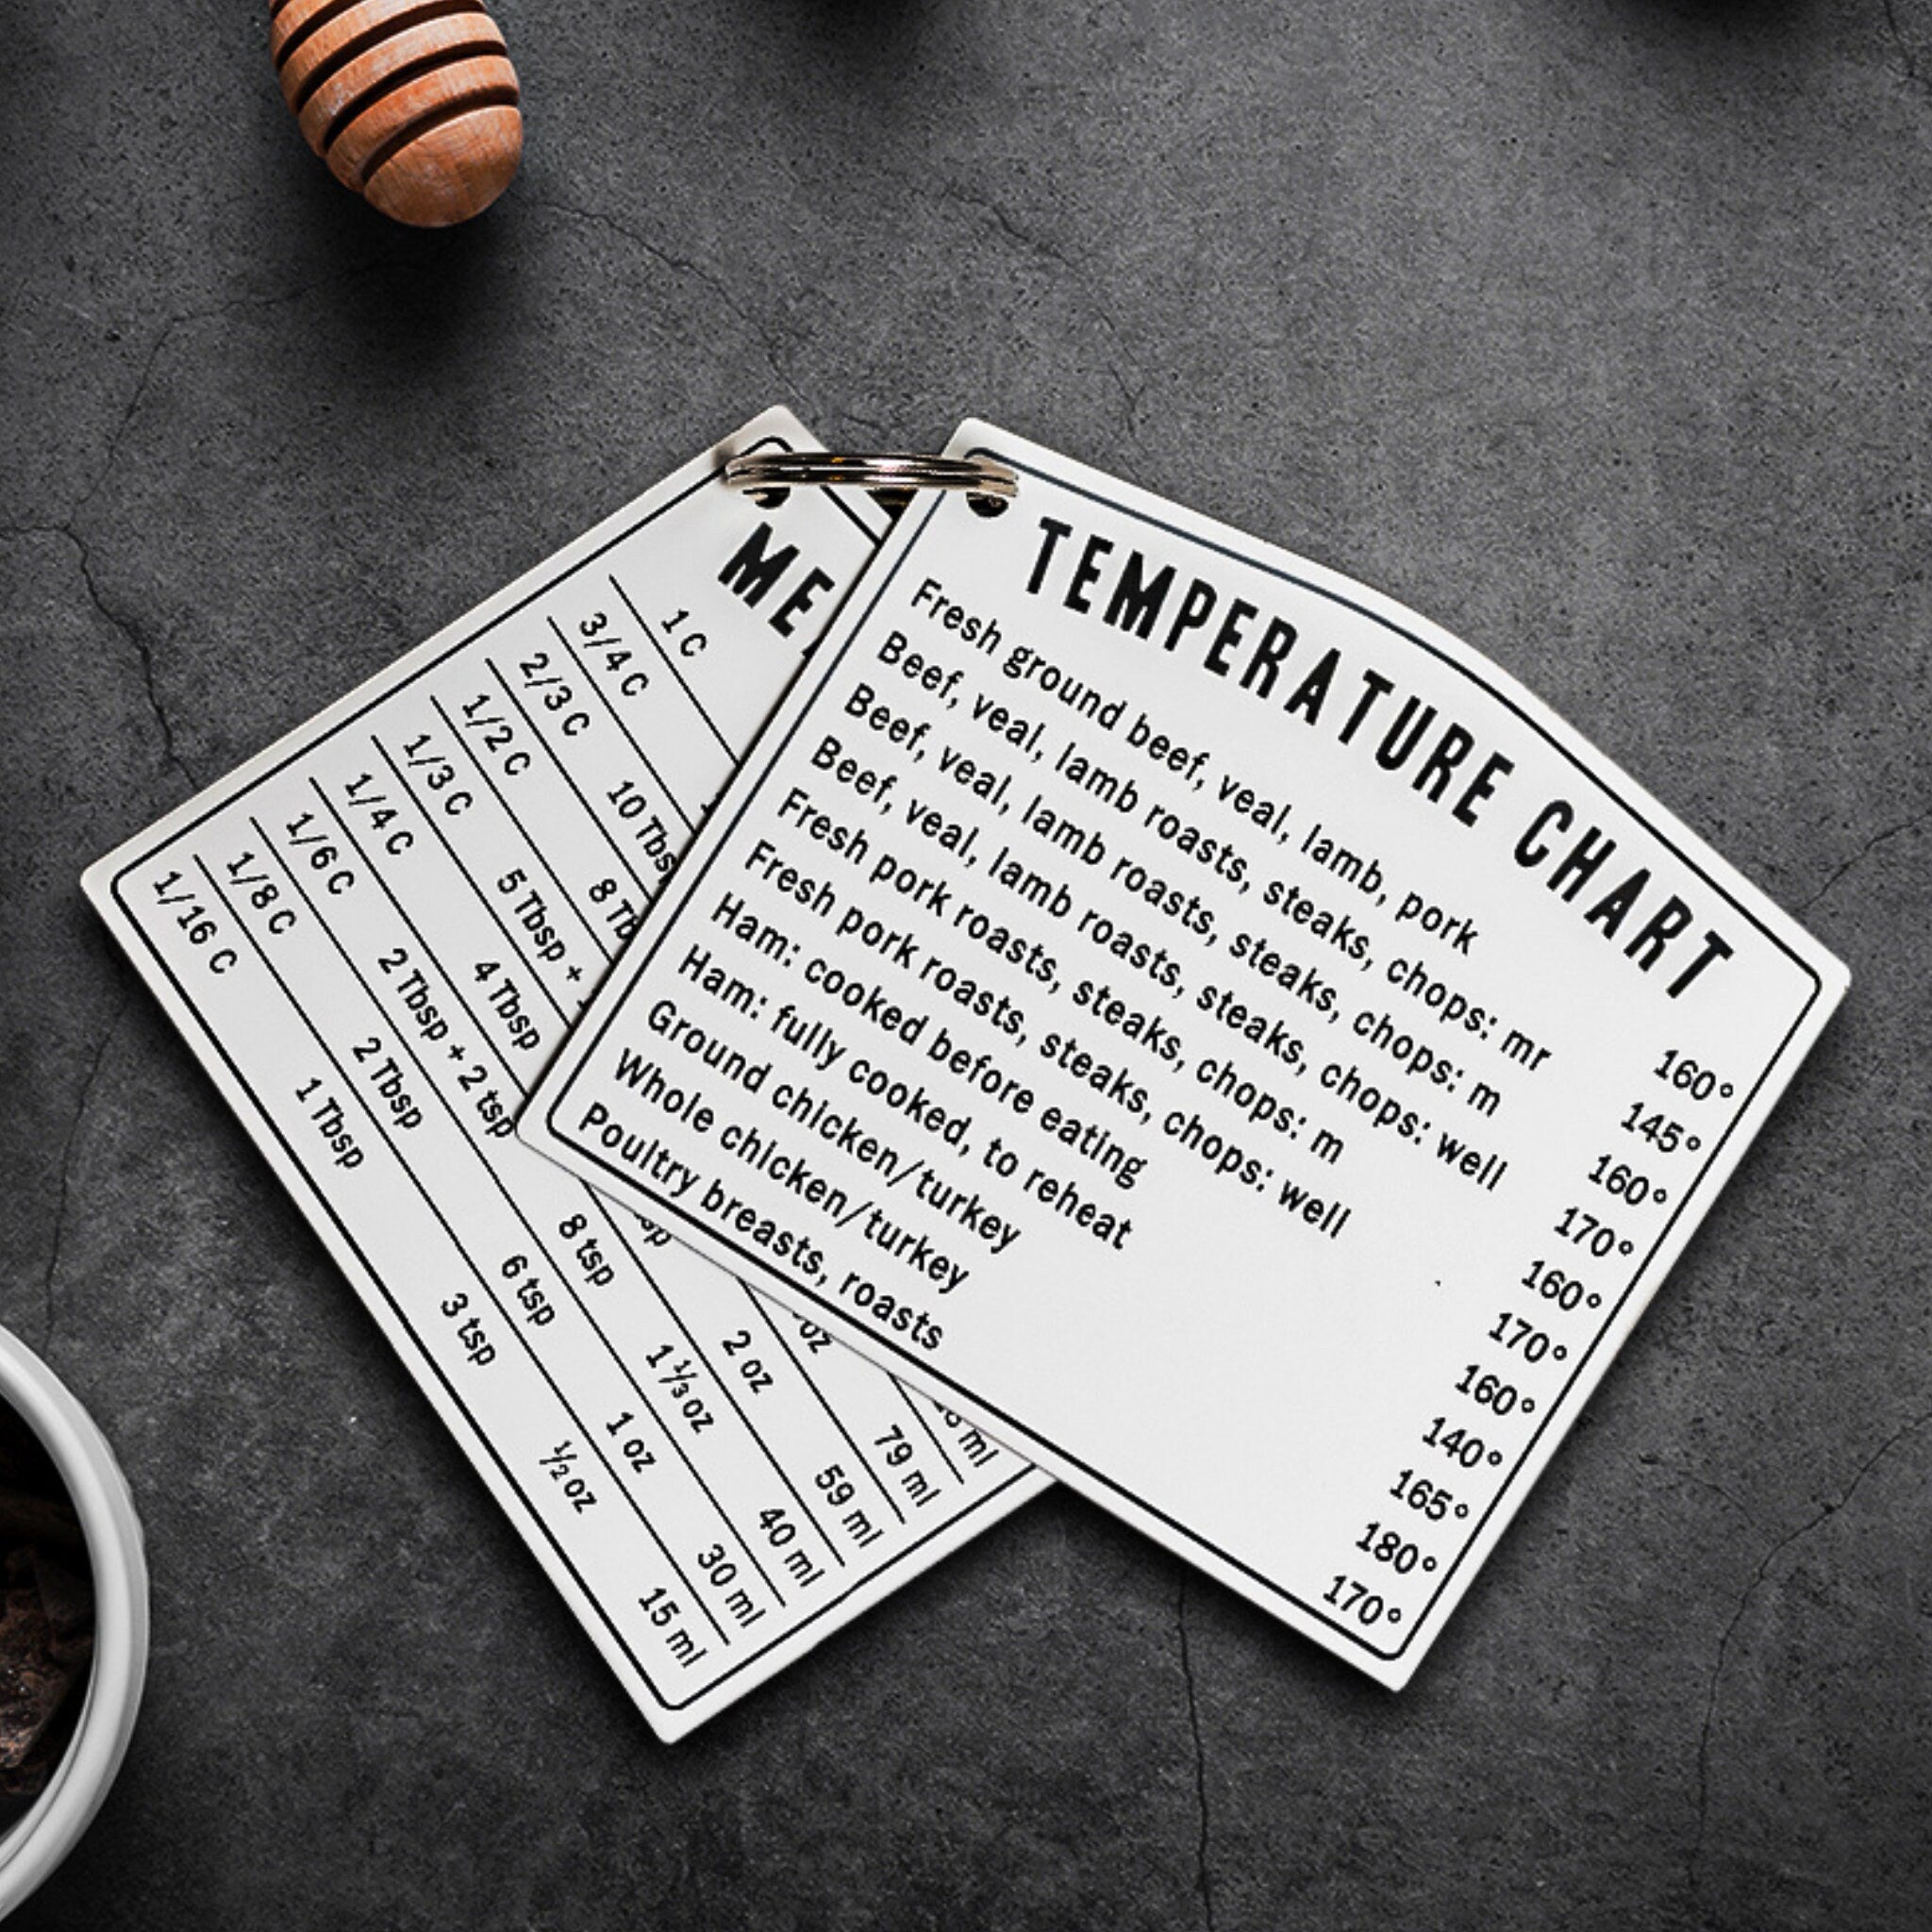 TEMPERATURE CHART
Fresh ground beef, veal, lamb, pork 160°
Beef, veal, lamb roasts, steaks, chops: mr 145°
Beef, veal, lamb roasts, steaks, chops: m 160°
Beef, veal, lamb roasts, steaks, chops: well 170°
Fresh pork roasts, steaks, chops: m 160°
Fresh pork roasts, steaks, chops: well 170°
Ham: cooked before eating 160°
Ham: fully cooked, to reheat 140°
Ground chicken/turkey 165°
Whole chicken/turkey 180°
Poultry breasts, roasts 170°
1 C
3/4 C
2/3 C 10
1/2 C 8
1/3 C 5 Tbsp + 79 ml
1/4 C 4 Tbsp 2 oz 59 ml
1/6 C 2 Tbsp + 2 tsp 8 tsp 1 1/3 oz 40 ml
1/8 C 2 Tbsp 6 tsp 1 oz 30 ml
1/16 C 1 Tbsp 3 tsp ½ oz 15 ml